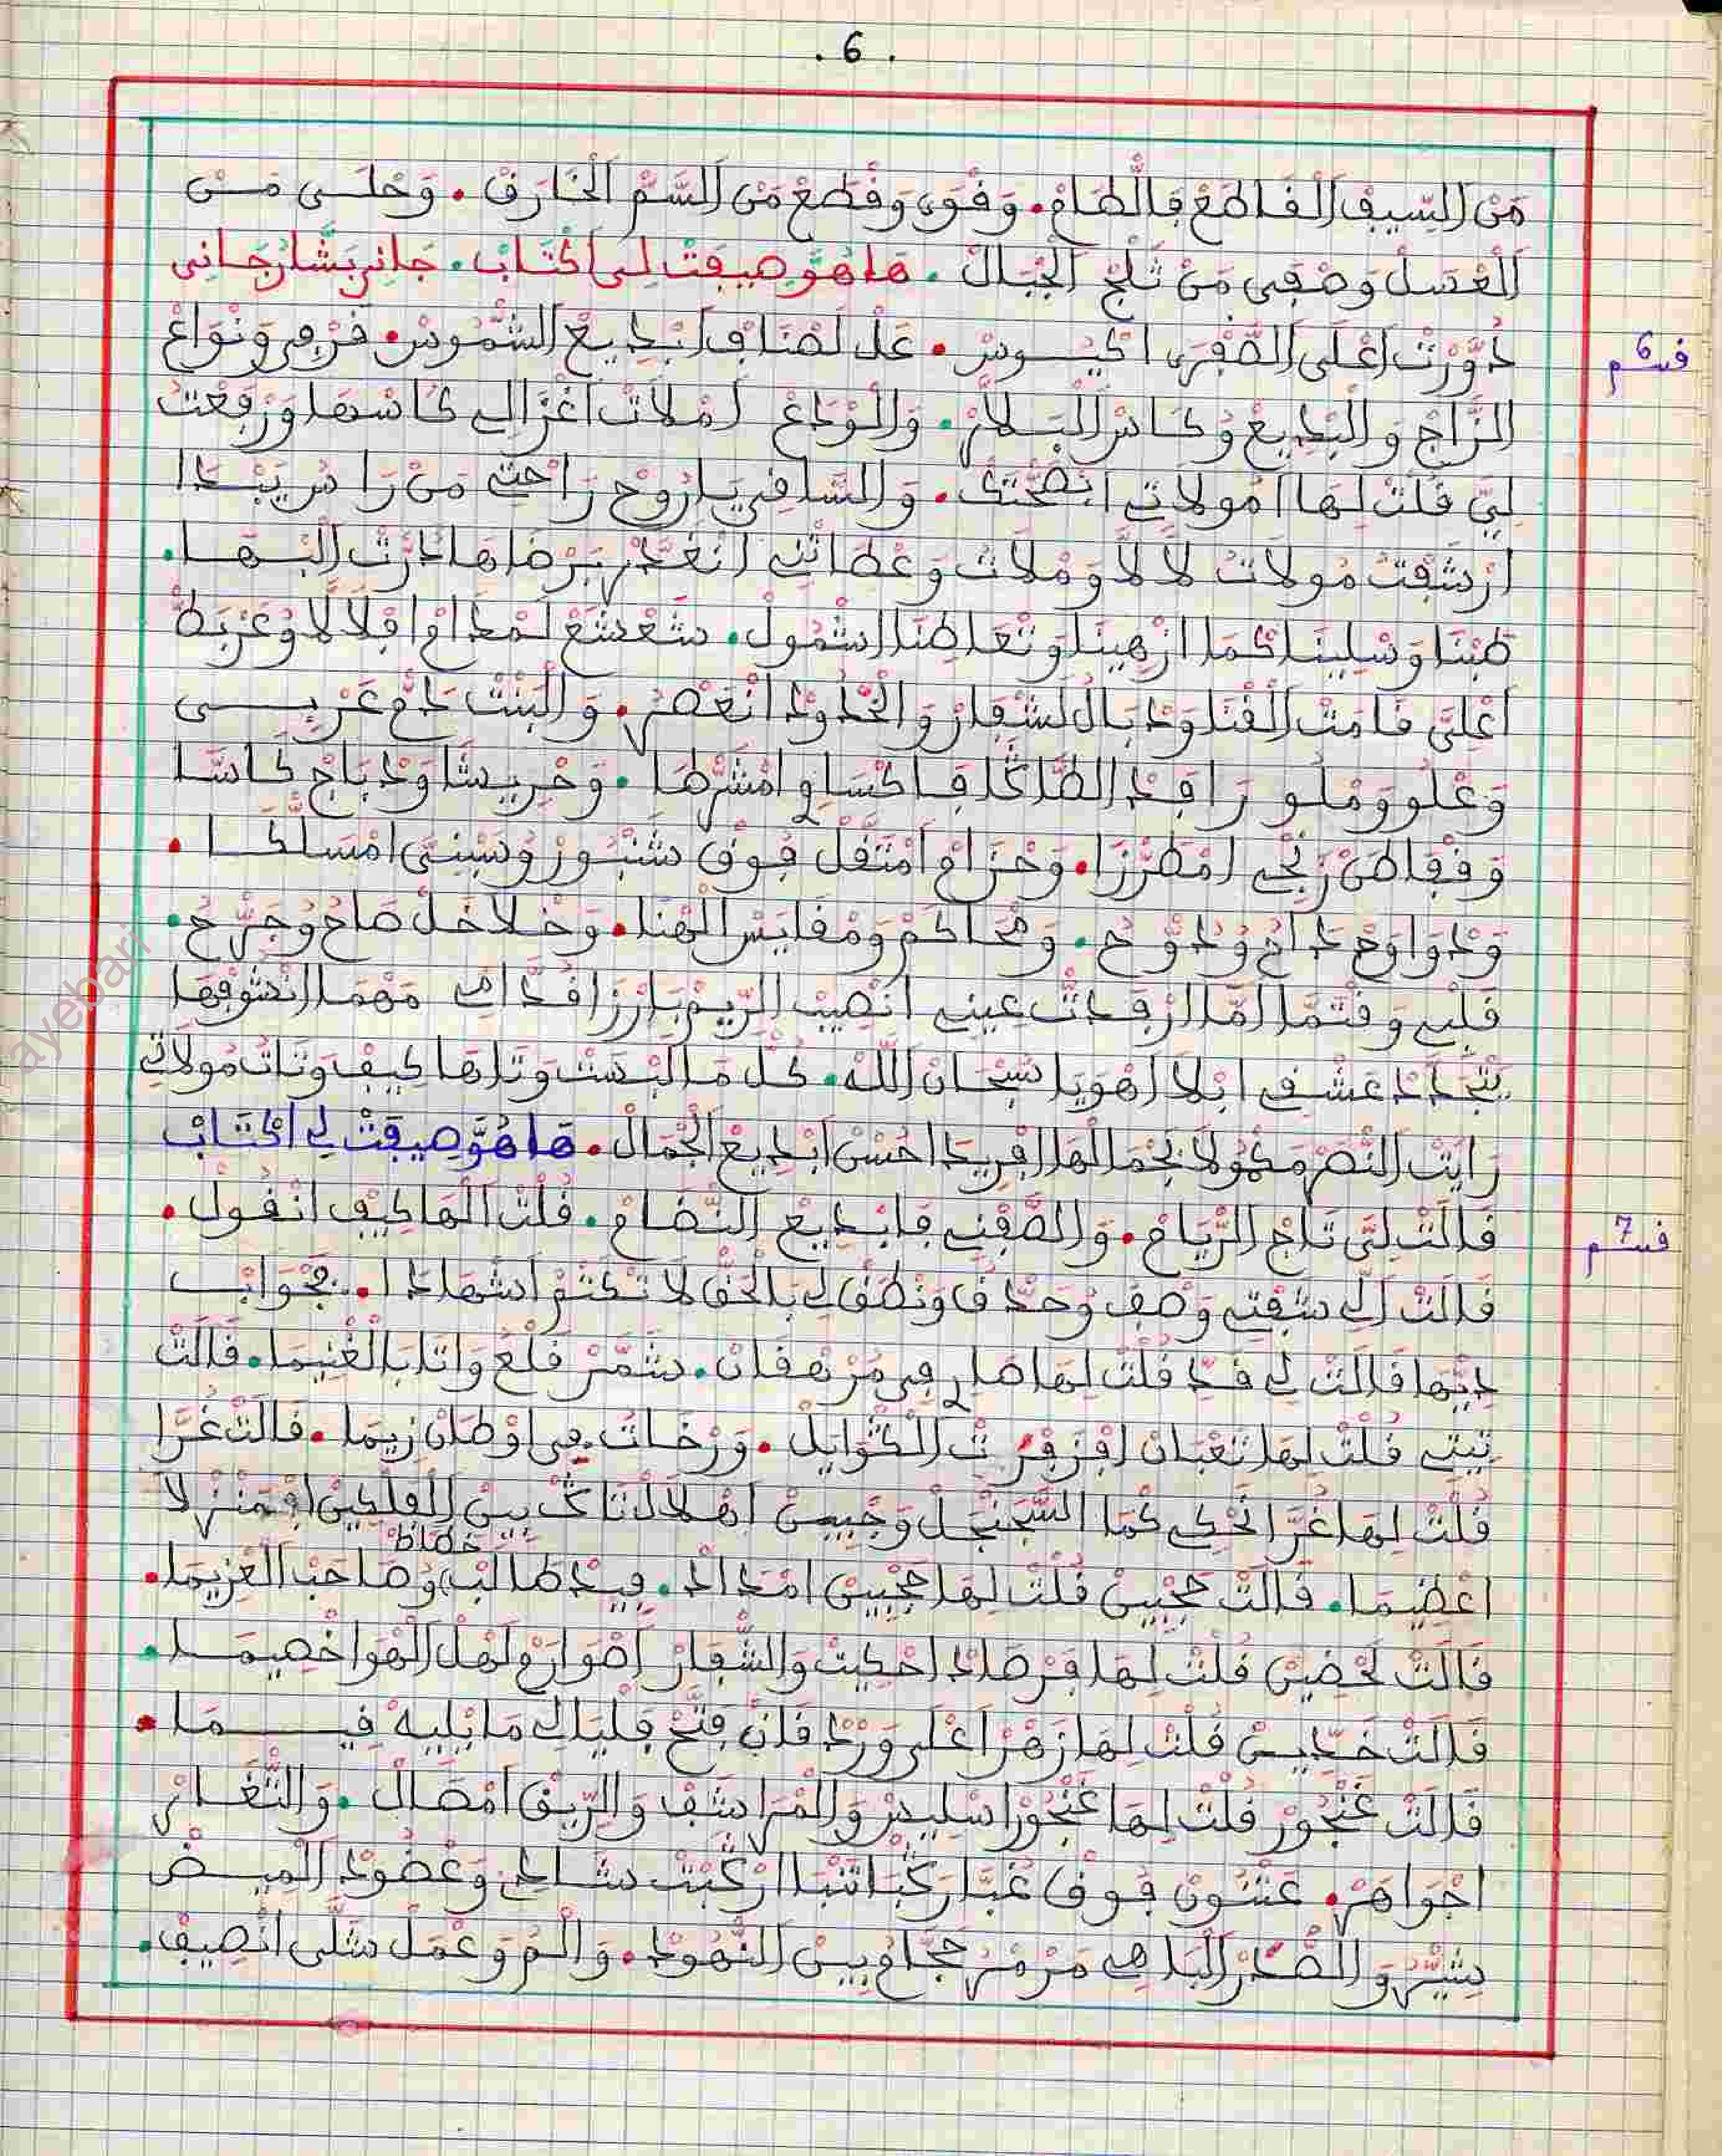 . 6 .
مَنْ السِّيفْ الْقَاطَعْ فَالطَّامْ. وَقْوَى وَقْطَعْ مَنْ السَّمْ الْخَارَقْ. وَحْلَى مَنْ
الْعْسَلْ وَصْفَى مَنْ ثَلْجْ الْجْبَالْ. هَا هُوَّ صِيفَتْ لِي اكْتَابْ. جَانِي بَشَّارْ جَانِي
قسم 6
دَوَّرْتْ اعْلَى الصَّفْرَى اكْيُوسْ. عَلْ لَضْنَافْ ابْدِيعْ الشْمُوسْ. قَرْمِي وَنْوَاعْ
الزَّاجْ وَالْبْدِيعْ وُكَاسْ الْبَلَّارْ. وَالْوْدَاعْ امْلَاتْ اغْزَالِي كَاسْهَا وَرْفَعْتْ
لِيَّ قَلْتْ لَهَا امُولَاتِي ابْصَحْتَكْ. وَالسَّاقِي يَا رُوحْ رَاحْتِي مَنْ رَاسْ يَبْدَا
ارْشْفَتْ مُولَاتْ لَالَّا وَمْلَاتْ وَعْطَاتْنِي انْغَدَّرْ بَرْضَاهَا دَرْتْ الْبْهَا.
طَبْنَا وَسْلِينَا كَمَا ازْهِينَا وَتْعَاطِنَا الشْمُولْ. شَعْشَعْ لَمْدَامْ افْلَالَّا وُعَرْبَطْ
اعْلِيَّ قَامَتْ الْفْتَا وَدْبَالْ لَشْفَارْ وَالْخْدُودْ انْعَصْرُ. وَالْبَنْتْ دَمْ عَرْبِي
وَعْلُو وَمْلُو رَافْدْ الطَّاكَا فَاكْسَاوِي امْشَرْهَا. وَحْرِيشَا وَدْبَاجْ كَاسَّا
وَقْفَاطَنْ زَنْجِي امْطَرْزَا. وَحْزَامْ امْثَقَّلْ فُوقْ شَنْبُورْ وُسَبْنِيَّ امْسَلْكَا.
وَدْوَاوَحْ دَاحُ وُدَوَّحُ. وَمْحَاكَمْ وَمْقَايَسْ الْهْنَا. وَخْلَاخَلْ صَاحُ وُجَرْحُ.
قَلْبِي وَقْتَمَا امَّا ارْقْدَتْ عِينِي انْصِيبْ الرِّيمْ بَارَزْ اقُدَّامِي مَهْمَا انْشُوفْهَا
يَتْجَدَّدْ عَشْقِي ابْلَا اهْوَى يَا سُبْحَانْ اللَّهْ. كُلّْ مَا الْبْسَتْ وَتَاهَا كِيفْ وَتَاتْ مُولَاتِي
رَايَتْ النَّصْرْ مَكْمُولَا بَجْمَالْهَا افْرِيدَا احُسْنْ ابْدِيعْ الْجْمَالْ. هَا هُوَّ صِيفَتْ لِي اكْتَابْ
قسم 7
قَالَتْ لِيَّ تَاجْ الرِّيَامْ. وَالصَّفْنِي فَابْدِيعْ النّْضَامْ. قُلْتْ الْهَا كِيفْ انْقُولْ.
قَالَتْ الِي شَفْتِي وَصْفْ وُحَدَّقْ وَنْطَقْ لِي بَالْحَقّْ لَا تَكْتَمْ اشْهَادَا. بَجْوَابْ
دِيّْهَا قَالَتْ لِي قَدِّ قُلْتْ لِهَا صَارِي فِي مَرْهْفَانْ. شَمَّرْ قَلْعُ وَاتَا بَالْغْنِيمَا. قَالَتْ
تِيتِي قُلْتْ لِهَا تَعْبَانْ افْزَفْزَتْ الْكْوَايَلْ. وَرْخَاتْ فِي اوْطَانْ زِيمَا. قَالَتْ غُرَّا
قُلْتْ لِهَا غُرَّا تَحْكِي كَمَا السَّجَنْجَلْ وَجْبِينْ اهْلَالْ نَاكْ بِينْ الْفَلْكِينْ افْمَنْزْلَا
خطاط
اعْضِيمَا. قَالَتْ حَجْبِينْ قُلْتْ لِهَا حَجْبِينْ امْدَادْ. فِيدْ طَالَبْ وُصَاحَبْ الْعْزِيمَا.
قَالَتْ لَحْضِينْ قُلْتْ لِهَا فَرْصَادْ احْكِيتْ وَالشّْفَارْ اصْوَارَمْ لَهْلْ الْهْوَا خْصِيمَا.
قَالَتْ خَدِّينْ قُلْتْ لِهَا زَهْرَا عْلَى وَرْدْ قَانْ فَتَّحْ فَلْيَالِي مَا بْلِيهْ فِيمَا.
قَالَتْ غَنْجُورْ قُلْتْ لِهَا غَنْجُورْ اسْلِيسْ وَالْمْرَاشَفْ وَالرِّيقْ امْصَالْ. وَالثّْغَارْ
اجْوَاهَرْ. عَتْنُونْ فُوقْ غُبَّا رَكْبَا تَنْبَا ارْكْبَتْ شَادِي وَعْضُودْ الْمِيضْ
يشيّر وَالصّْدَرْ الْبَاهِي مَرْمَرْ حَجَّامْ بِينْ النّْهُودْ. وَالْمُ وَعْمَلْ شَلَّى انْصِيفْ.